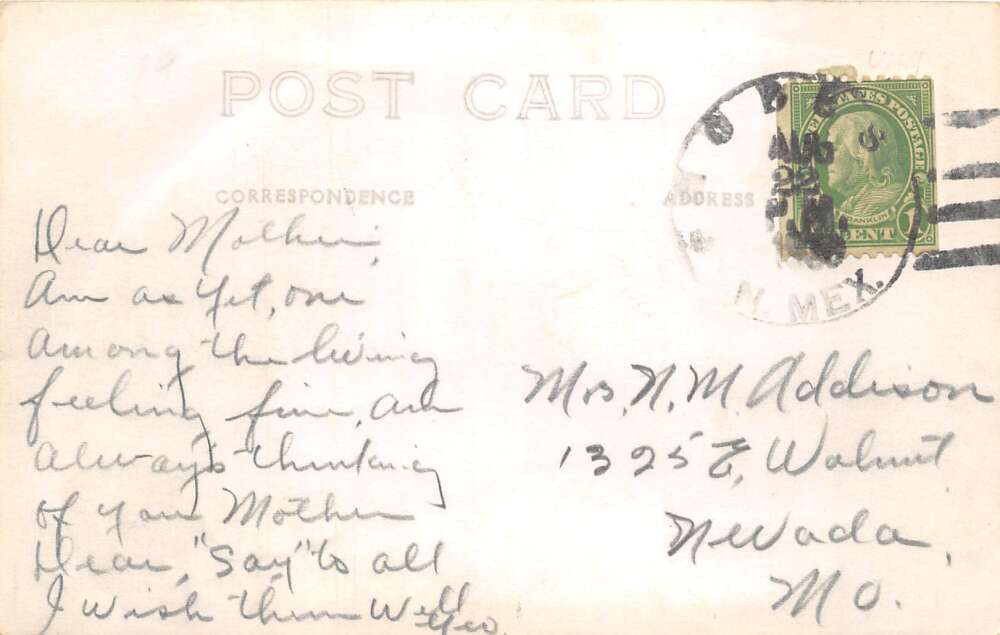 POST CARD
CORRESPONDENCE
ADDRESS
AUG
22
N. MEX.
UNITED STATES POSTAGE
FRANKLIN
1 CENT
Dear Mother,
Am as yet, one
among the living
feeling fine, am
always thinking
of you Mother
Dear, "Say" to all
I wish them Well
Geo.
Mrs. N. M. Addison
1325 E. Walnut
Nevada,
Mo.